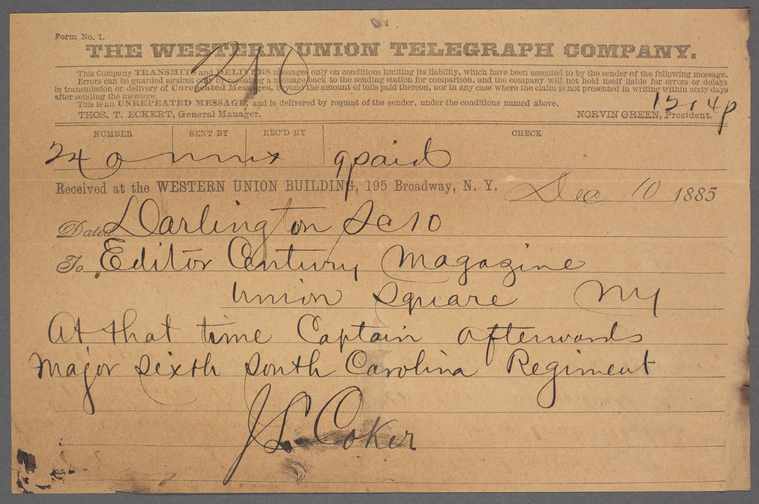 Form No. 1.
THE WESTERN UNION TELEGRAPH COMPANY.
210
This Company TRANSMITS and DELIVERS messages only on conditions limiting its liability, which have been assented to by the sender of the following message.
Errors can be guarded against only by repeating a message back to the sending station for comparison, and the company will not hold itself liable for errors or delays
in transmission or delivery of Unrepeated Messages, beyond the amount of tolls paid thereon, nor in any case where the claim is not presented in writing within sixty days
after sending the message.
This is an UNREPEATED MESSAGE, and is delivered by request of the sender, under the conditions named above.
THOS. T. ECKERT, General Manager. NORVIN GREEN, President.
NUMBER SENT BY REC'D BY CHECK
24 9paid
Received at the WESTERN UNION BUILDING, 195 Broadway, N. Y. Dec 10 1885
Dated Darlington SC 10
To Editor Century Magazine
Union Square NY
At that time Captain afterwards
Major Sixth South Carolina Regiment
JL Coker